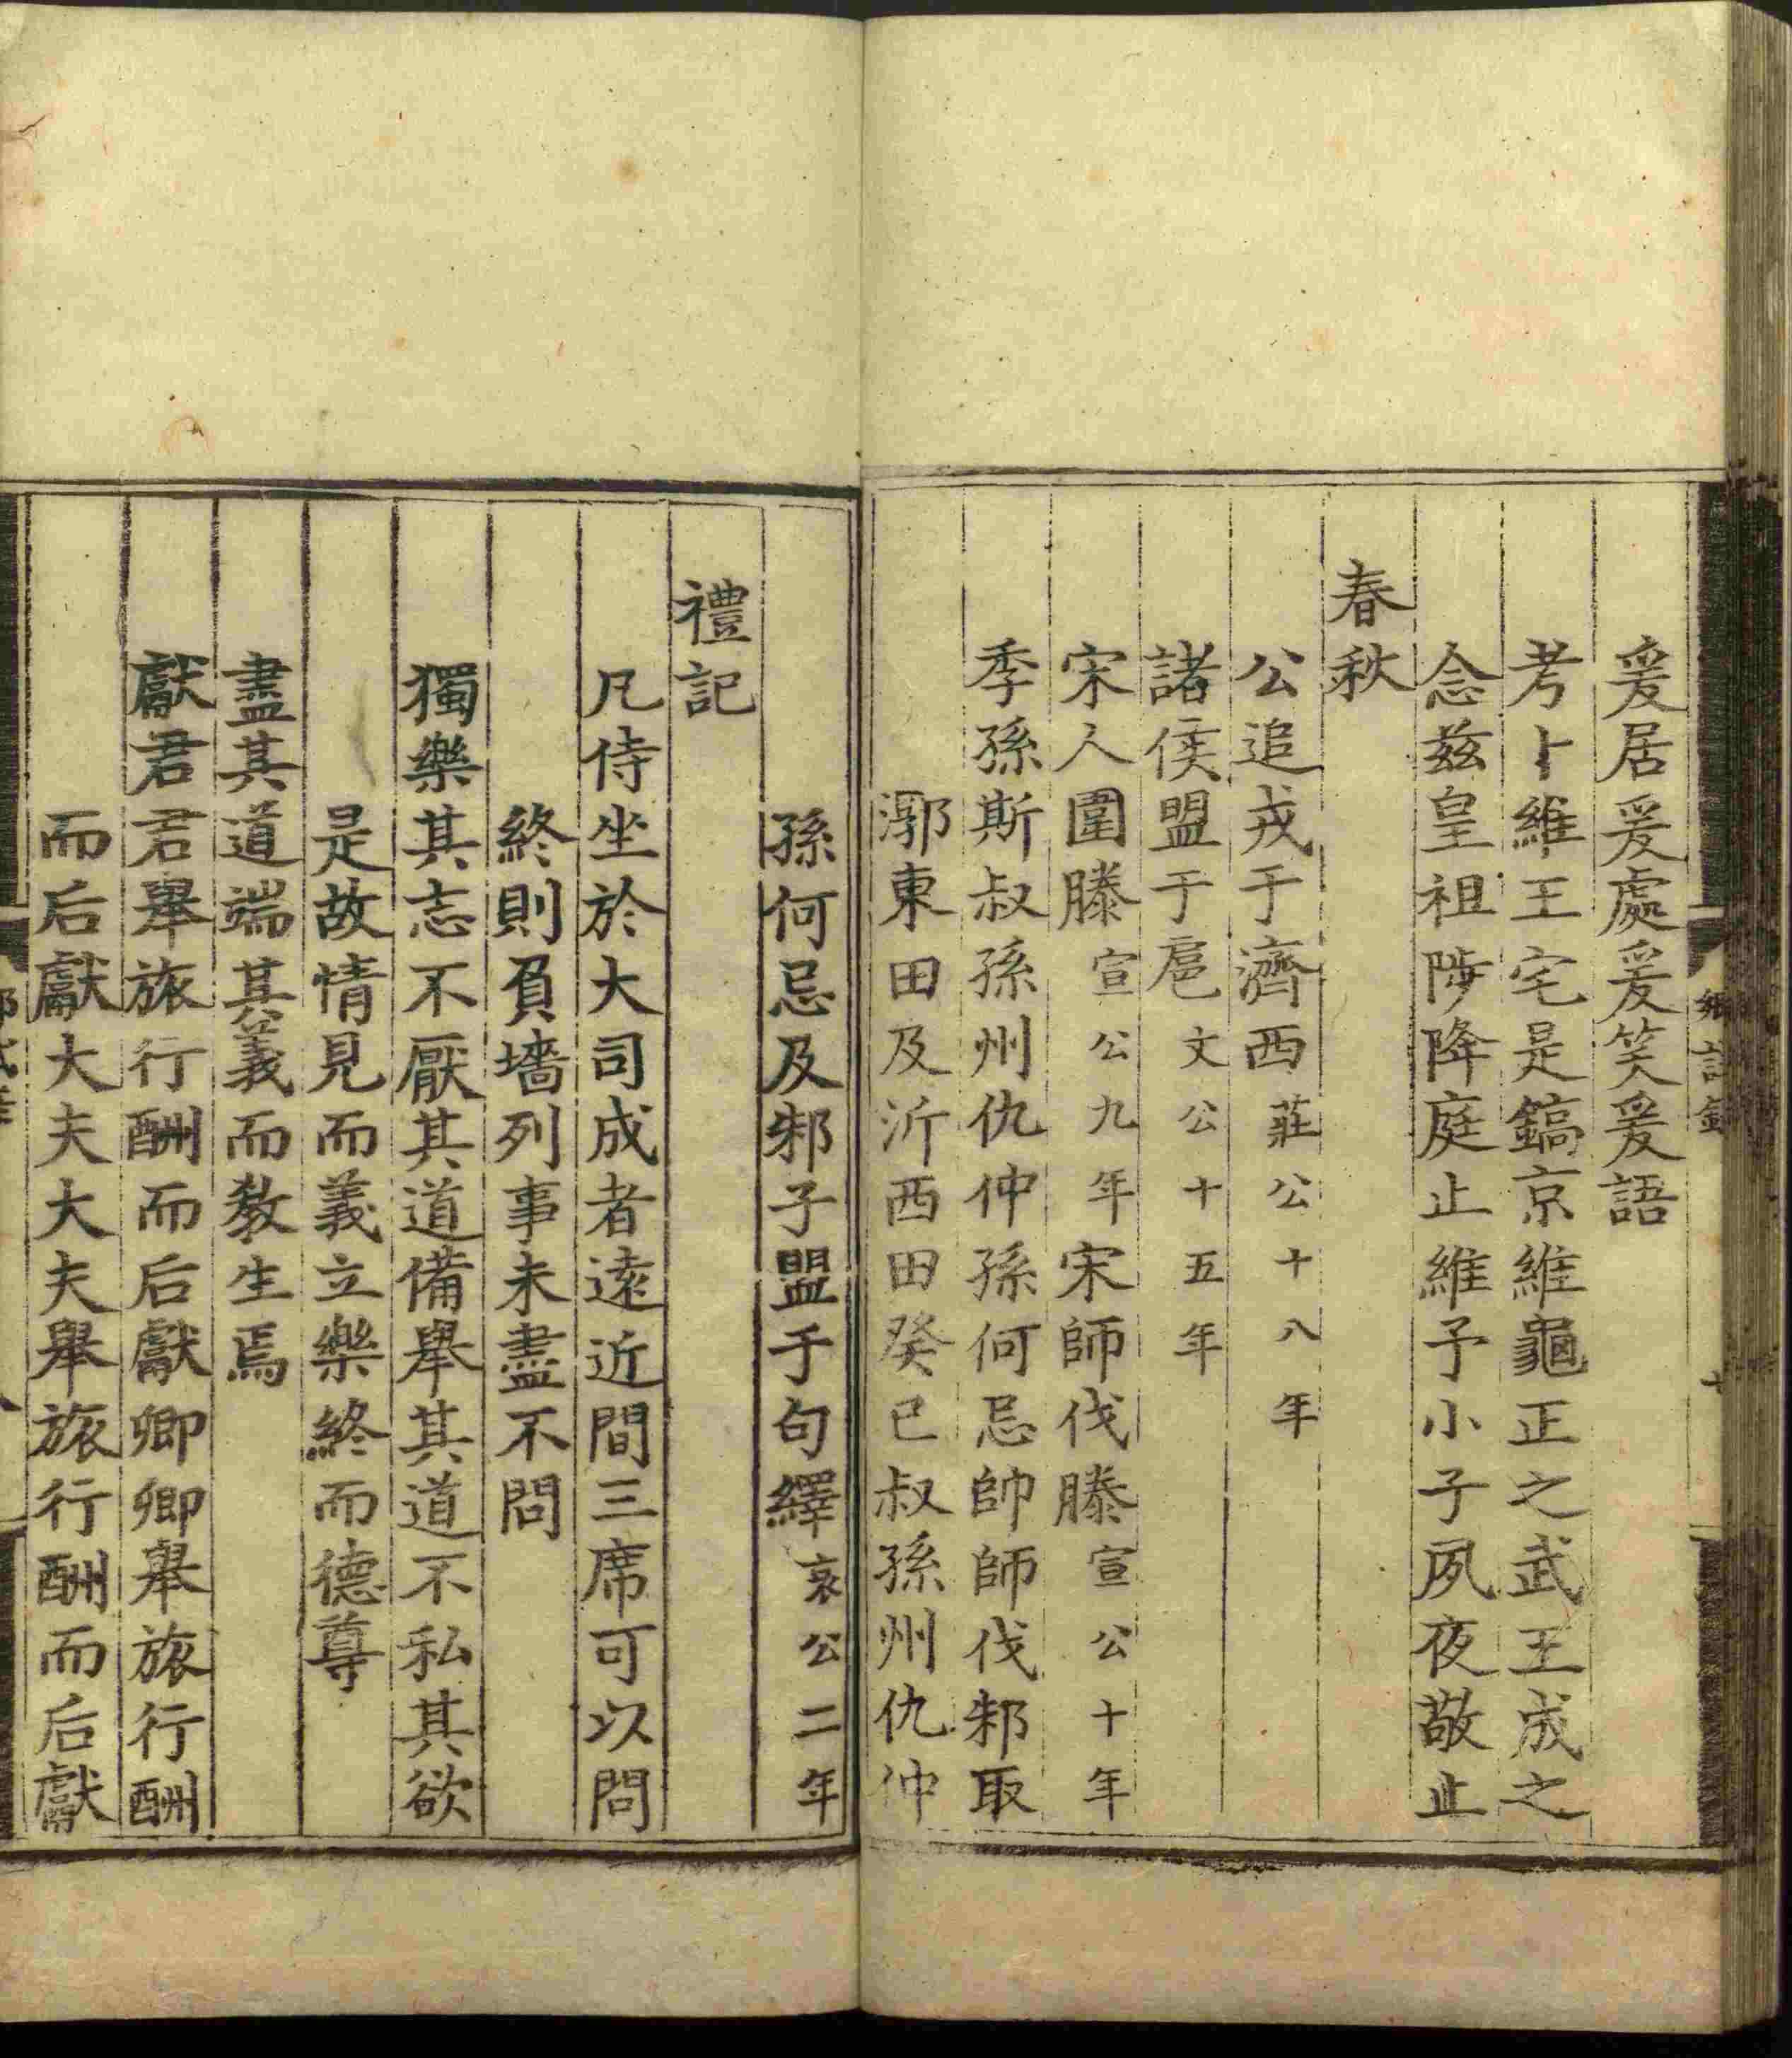 爰居爰處爰笑爰語
考卜維王宅是鎬京維龜正之武王成之
念茲皇祖陟降庭止維予小子夙夜敬止
春秋
公追戎于濟西莊公十八年
諸侯盟于扈文公十五年
宋人圍滕宣公九年宋師伐滕宣公十年
季孫斯叔孫州仇仲孫何忌帥師伐邾取
漷東田及沂西田癸巳叔孫州仇仲
孫何忌及邾子盟于句繹哀公二年
禮記
凡侍坐於大司成者遠近間三席可以問
終則負墻列事未盡不問
獨樂其志不厭其道備舉其道不私其欲
是故情見而義立樂終而德尊
盡其道端其義而教生焉
獻君君舉旅行酬而后獻卿卿舉旅行酬
而后獻大夫大夫舉旅行酬而后獻